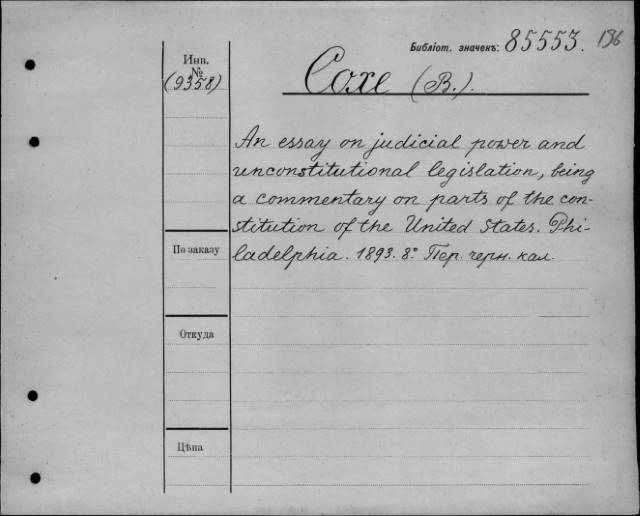 Библіот. значекъ: 85553. 136
Инв.
№
(9358)
Coxe (B.).
An essay on judicial power and
unconstitutional legislation, being
a commentary on parts of the con-
stitution of the United States. Phi-
ladelphia. 1893. 8° Пер. черн. кал.
По заказу
Откуда
Цѣна